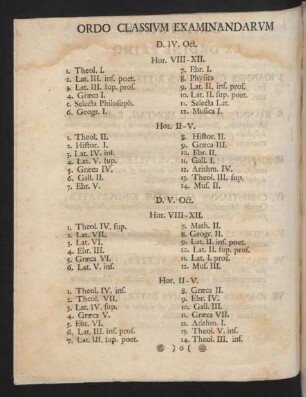 ORDO CLASSIVM EXAMINANDARVM
D. IV. Oct.
Hor. VIII-XII.
1. Theol. I.
2. Lat. III. inf. poet.
3. Lat. III. sup. pros.
4. Græca I.
5. Selecta Philosoph.
6. Geogr. I.
7. Ebr. I.
8. Physica
9. Lat. II. inf. pros.
10. Lat. II. sup. poet.
11. Selecta Lat.
12. Musica I.
Hor. II-V.
1. Theol. II.
2. Histor. I.
3. Lat. IV. inf.
4. Lat. V. sup.
5. Græca IV.
6. Gall. II.
7. Ebr. V.
8. Histor. II.
9. Græca III.
10. Ebr. II.
11. Gall. I.
12. Arithm. IV.
13. Theol. III. sup.
14. Mus. II.
D. V. Oct.
Hor. VIII-XII.
1. Theol. IV. sup.
2. Lat. VII.
3. Lat. VI.
4. Ebr. III.
5. Græca VI.
6. Lat. V. inf.
7. Math. II.
8. Geogr. II.
9. Lat. II. inf. poet.
10. Lat. II. sup. pros.
11. Lat. I. pros.
12. Mus. III.
Hor. II-V.
1. Theol. IV. inf.
2. Theol. VII.
3. Lat. IV. sup.
4. Græca V.
5. Ebr. VI.
6. Lat. III. inf. pros.
7. Lat. III. sup. poet.
8. Græca II.
9. Ebr. IV.
10. Gall. III.
11. Græca VII.
12. Arithm. I.
13. Theol. V. inf.
14. Theol. III. inf.
)o(